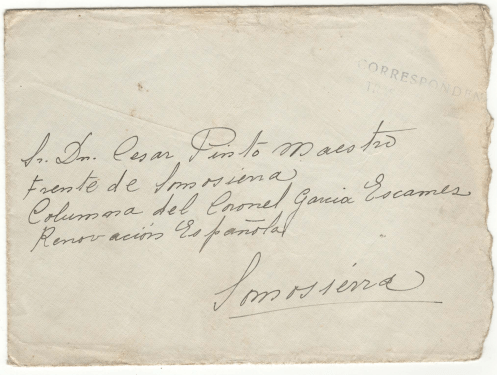 CORRESPONDEN
Sr. Dn. Cesar Pinto Maestro
Frente de Somosierra
Columna del Coronel Garcia Escames
Renovación Española
Somosierra